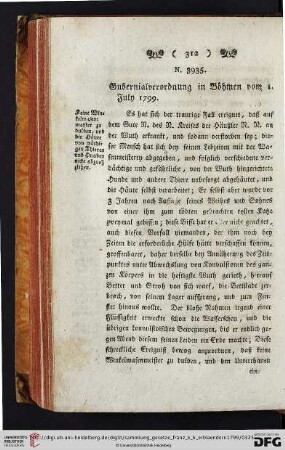 ( 312 )
N. 3935.
Gubernialverordnung in Böhmen vom 1.
July 1799.
Keine Win-
kelwasen-
meister zu
dulden, und
die Häute
von wüthi-
gen Thieren
und Hunden
nicht abzuzie-
hen.
Es hat sich der traurige Fall ereignet, daß auf
dem Gute N. des N. Kreises der Häusler N. N. an
der Wuth erkrankt, und sodann verstorben sey; die-
ser Mensch hat sich bey seinen Lebzeiten mit der Wa-
senmeisterey abgegeben, und folglich verschiedene ver-
dächtige und gefährliche, von der Wuth hingerichtete
Hunde und andere Thiere unbefangt abgehäutet, und
die Häute selbst verarbeitet; Er selbst aber wurde vor
3 Jahren nach Aussage seines Weibes und Sohnes
von einer ihm zum tödten gebrachten tollen Katze
zweymal gebissen; diese Bisse hat er aber nicht geachtet,
auch diesen Vorfall niemanden, der ihm noch bey
Zeiten die erforderliche Hülfe hätte verschaffen können,
geoffenbaret, daher derselbe bey Annäherung des Zeit-
punktes unter Abwechslung von Konvulsionen des gan-
zen Körpers in die heftigste Wuth gerieth, herauf
Better und Stroh von sich warf, die Bettstäde zer-
brach, von seinem Lager aufsprang, und zum Fen-
ster hinaus wollte. Der bloße Nahmen irgend einer
Flüssigkeit erweckte schon die Wasserscheu, und die
übrigen konvulsivischen Bewegungen, bis er endlich ge-
gen Abend diesem seinem Leiden ein Ende machte; Diese
schreckliche Ereigniß bewog anzuordnen, daß keine
Winkelwasenmeister zu dulden, und den Unterthanen
ein-
http://digi.ub.uni-heidelberg.de/diglit/sammlung_gesetze_franz_k_k_erblaendern1799/0321
© Universitätsbibliothek Heidelberg
gefördert durch die
DFG